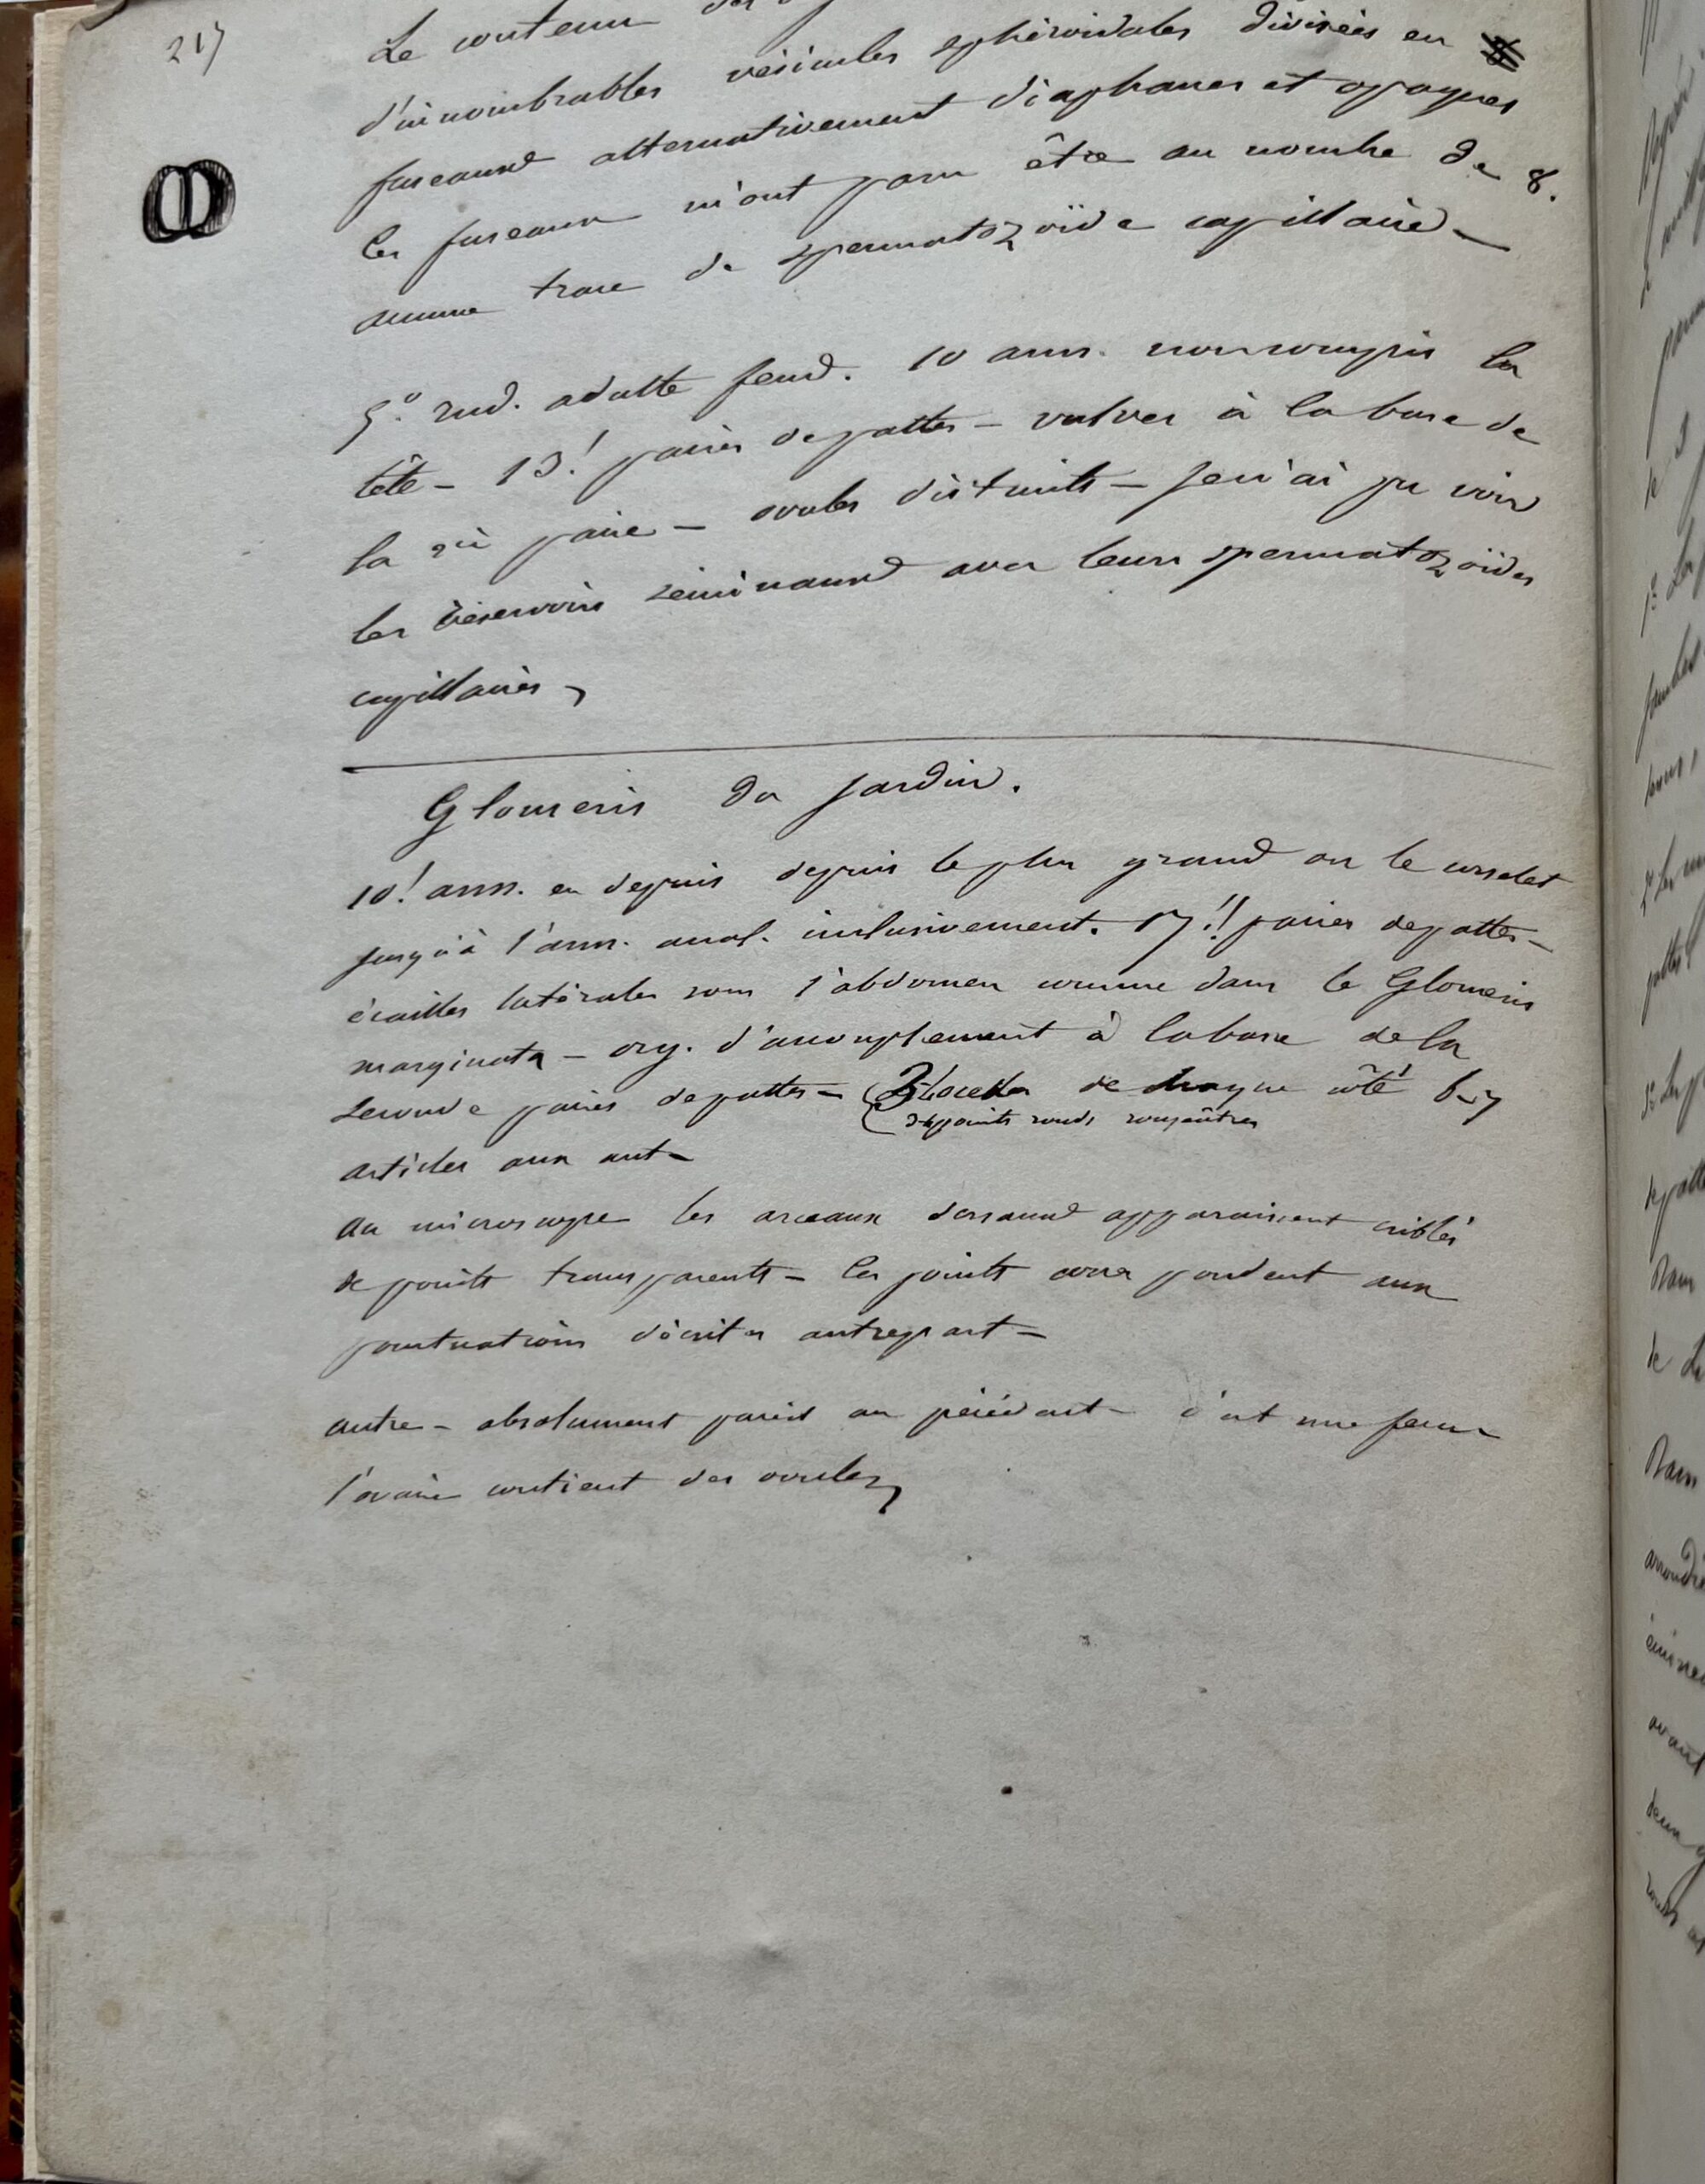 217
Le contenu des
d'innombrables vésicules sphéroidales divisées en
fuseaux alternativement diaphanes et opaques
les fuseaux m'ont paru être au nombre de 8.
aucune trace de spermatozoïde capillaire —
5.° ind. adulte fem. 10 ann. non compris la
tête — 13! paires de pattes — vulves à la base de
la 2e paire — ovules distincts — je n'ai pu voir
les réservoirs séminaux avec leurs spermatozoïdes
capillaires,
Glomeris du jardin.
10! ann. en depuis depuis le plus grand ou le corselet
jusqu'à l'ann. anal. inclusivement. 17!! paires de pattes —
écailles latérales sous l'abdomen comme dans le Glomeris
marginata — org. d'accouplement à la base de la
seconde paires de pattes — 3 ocelles de chaque côté 6-7
points ronds rougeâtres
articles aux ant —
au microscope les arceaux dorsaux apparaissent criblés
de points transparents — les points correspondent aux
ponctuations décrites autrepart —
autre — absolument pareil au précédent — c'est une fem —
l'ovaire contient des ovules,